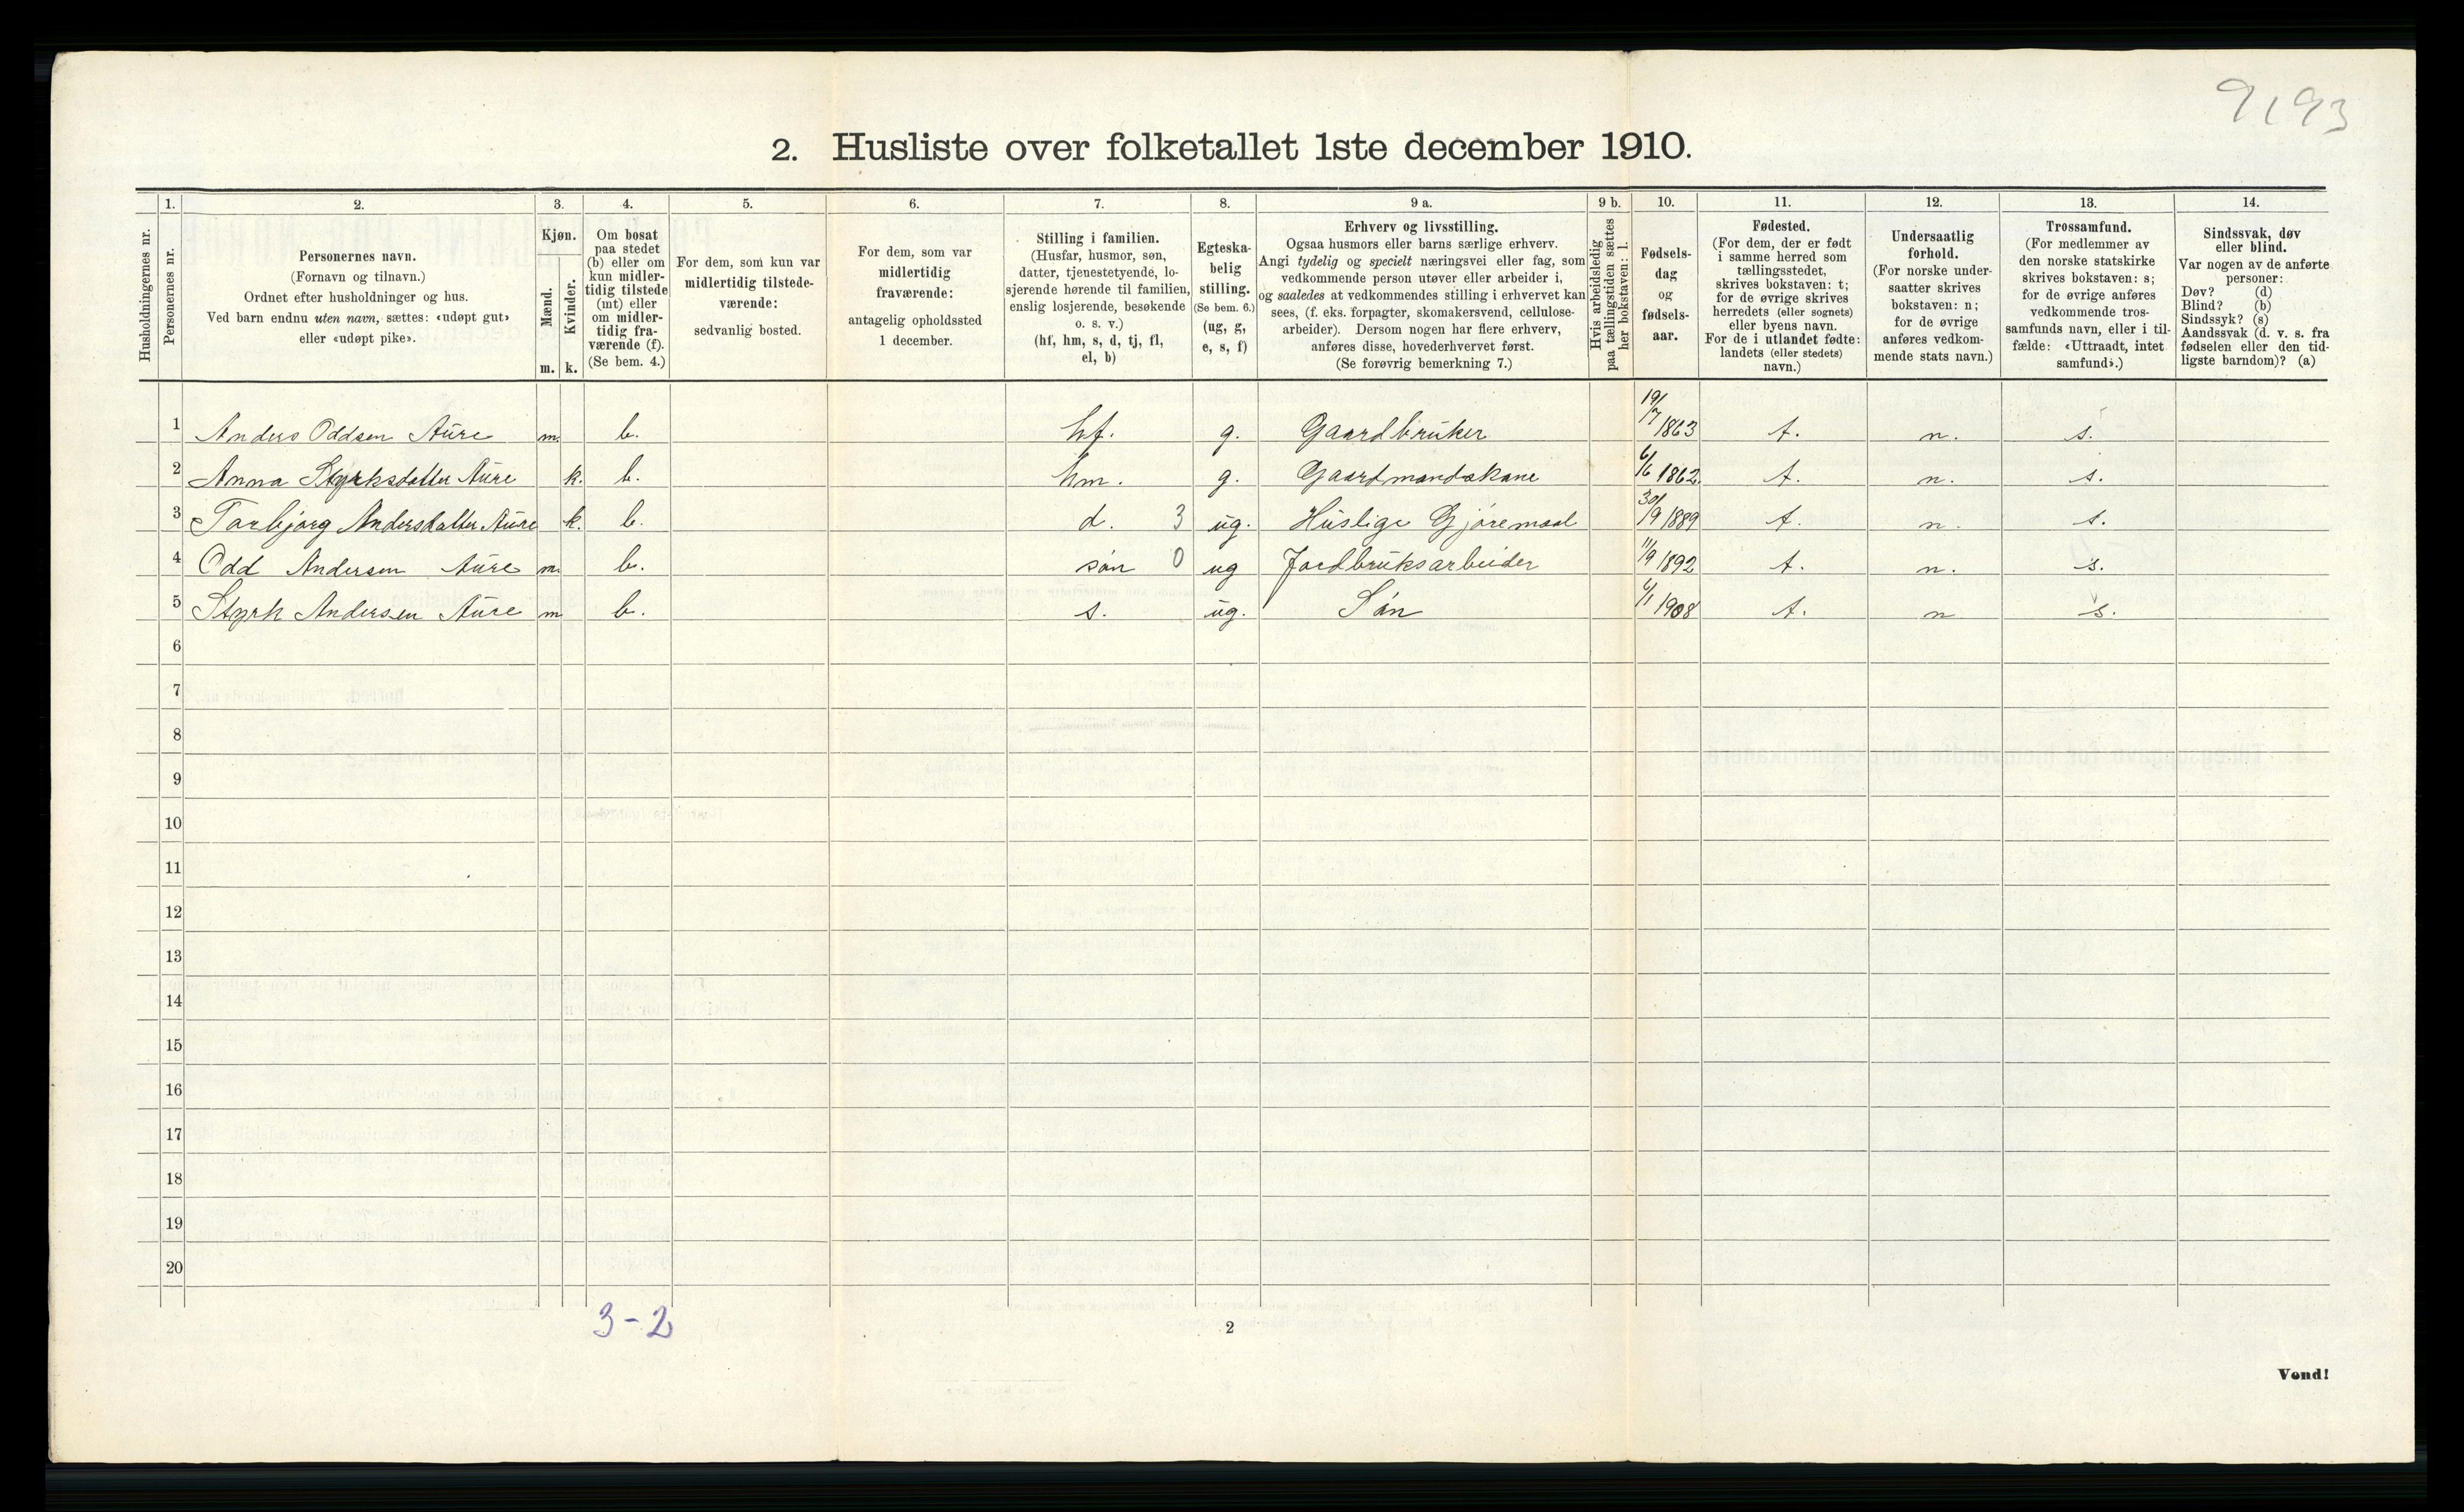 9193
2. Husliste over folketallet 1ste december 1910.
Husholdningernes nr.
1. Personernes nr.
2. Personernes navn. (Fornavn og tilnavn.) Ordnet efter husholdninger og hus. Ved barn endnu uten navn, sættes: «udøpt gut» eller «udøpt pike».
3. Kjøn. Mænd. m. Kvinder. k.
4. Om bosat paa stedet (b) eller om kun midlertidig tilstede (mt) eller om midlertidig fraværende (f). (Se bem. 4.)
5. For dem, som kun var midlertidig tilstedeværende: sedvanlig bosted.
6. For dem, som var midlertidig fraværende: antagelig opholdssted 1 december.
7. Stilling i familien. (Husfar, husmor, søn, datter, tjenestetyende, losjerende hørende til familien, enslig losjerende, besøkende o. s. v.) (hf, hm, s, d, tj, fl, el, b)
8. Egteskabelig stilling. (Se bem. 6.) (ug, g, e, s, f)
9 a. Erhverv og livsstilling. Ogsaa husmors eller barns særlige erhverv. Angi tydelig og specielt næringsvei eller fag, som vedkommende person utøver eller arbeider i, og saaledes at vedkommendes stilling i erhvervet kan sees, (f. eks. forpagter, skomakersvend, cellulosearbeider). Dersom nogen har flere erhverv, anføres disse, hovederhvervet først. (Se forøvrig bemerkning 7.)
9 b. Hvis arbeidsledig paa tællingstiden sættes her bokstaven: l.
10. Fødselsdag og fødselsaar.
11. Fødested. (For dem, der er født i samme herred som tællingsstedet, skrives bokstaven: t; for de øvrige skrives herredets (eller sognets) eller byens navn. For de i utlandet fødte: landets (eller stedets) navn.)
12. Undersaatlig forhold. (For norske undersaatter skrives bokstaven: n; for de øvrige anføres vedkommende stats navn.)
13. Trossamfund. (For medlemmer av den norske statskirke skrives bokstaven: s; for de øvrige anføres vedkommende trossamfunds navn, eller i tilfælde: «Uttraadt, intet samfund».)
14. Sindssvak, døv eller blind. Var nogen av de anførte personer: Døv? (d) Blind? (b) Sindssyk? (s) Aandssvak (d. v. s. fra fødselen eller den tidligste barndom)? (a)
1 Anders Oddsen Aure m. b. hf. g. Gaardbruker 19/7 1863 t. n. s.
2 Anna Styrksdatter Aure k. b. hm. g. Gaardmandskone 6/6 1862 t. n. s.
3 Torbjørg Andersdatter Aure k. b. d. 3 ug. Huslige Gjøremaal 30/9 1889 t. n. s.
4 Odd Andersen Aure m. b. søn 0 ug Jordbruksarbeider 11/9 1892 t. n. s.
5 Styrk Andersen Aure m b. s. ug. Søn 6/1 1908 t. n s.
6
7
8
9
10
11
12
13
14
15
16
17
18
19
20
3-2
2
Vend!